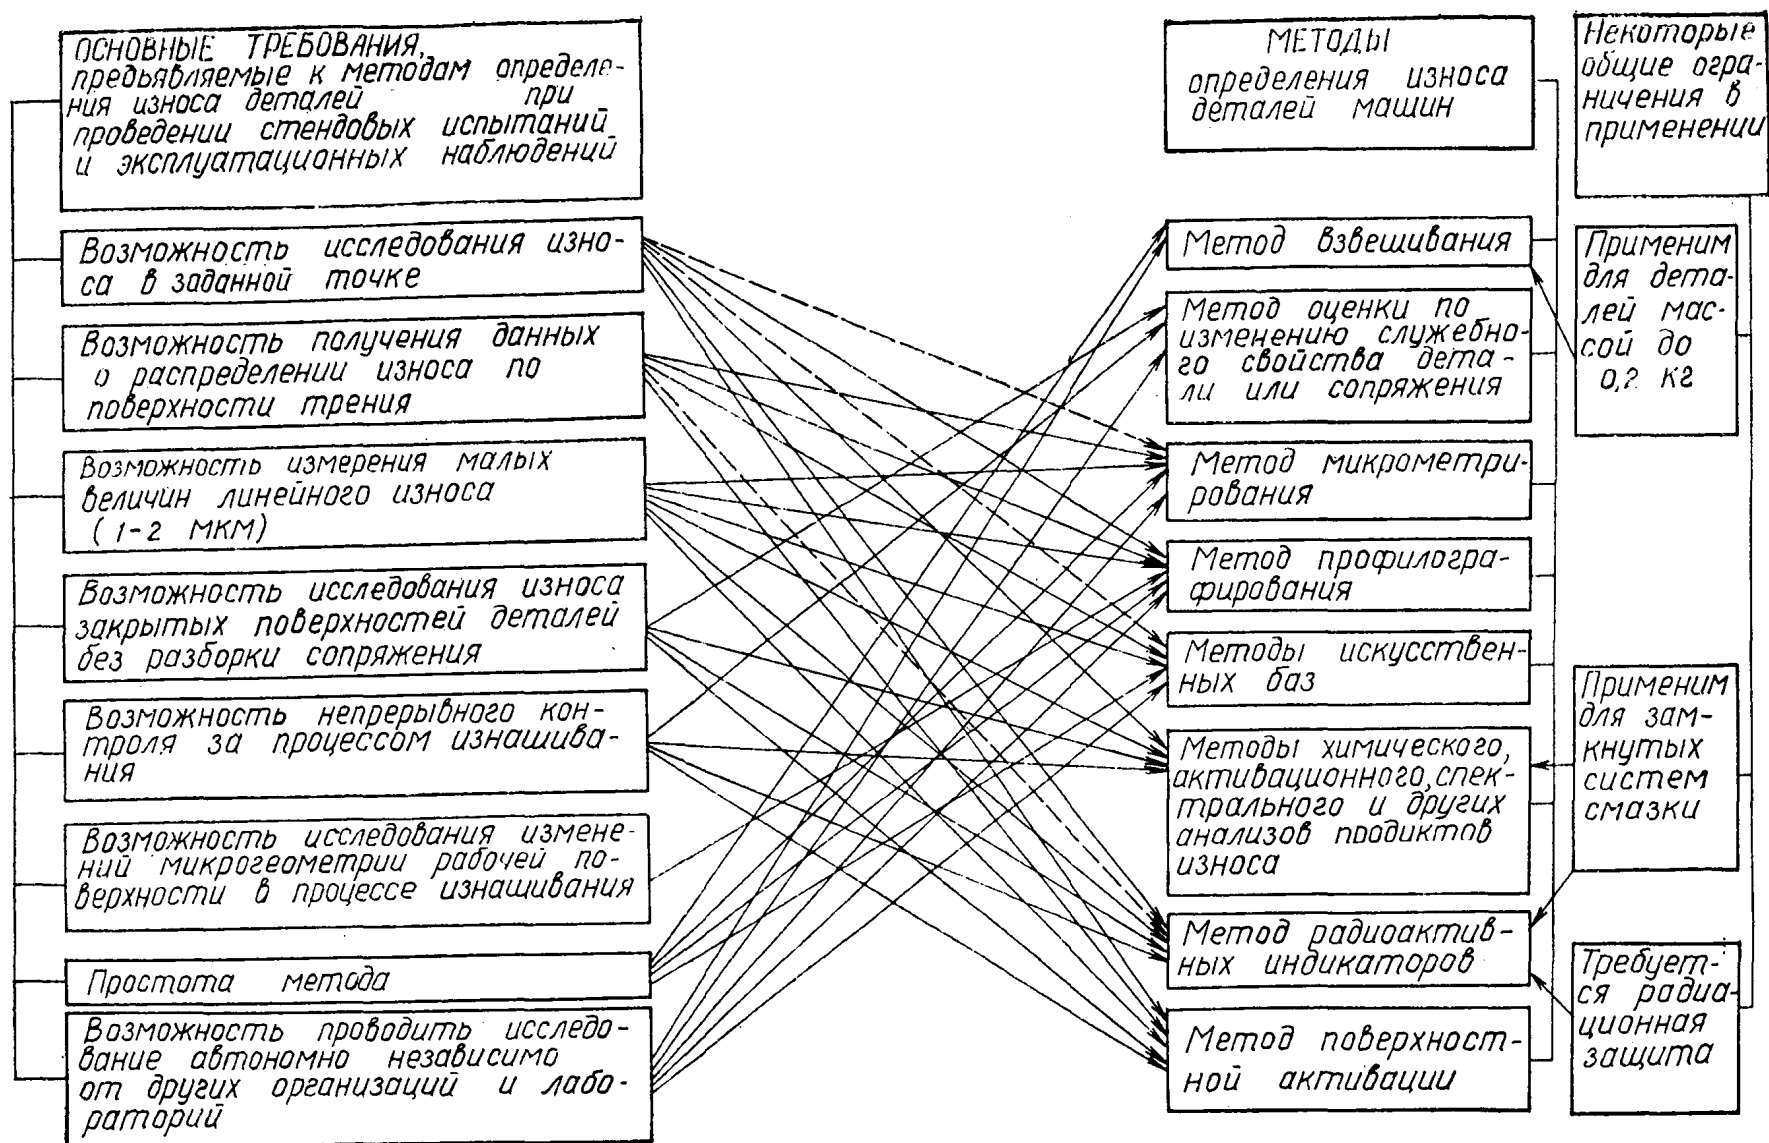 ОСНОВНЫЕ ТРЕБОВАНИЯ,
предъявляемые к методам определе-
ния износа деталей при
проведении стендовых испытаний
и эксплуатационных наблюдений
Возможность исследования изно-
са в заданной точке
Возможность получения данных
о распределении износа по
поверхности трения
Возможность измерения малых
величин линейного износа
(1-2 МКМ)
Возможность исследования износа
закрытых поверхностей деталей
без разборки сопряжения
Возможность непрерывного кон-
троля за процессом изнашива-
ния
Возможность исследования измене-
ний микрогеометрии рабочей по-
верхности в процессе изнашивания
Простота метода
Возможность проводить исследо-
вание автономно независимо
от других организаций и лабо-
раторий
МЕТОДЫ
определения износа
деталей машин
Метод взвешивания
Метод оценки по
изменению служебно-
го свойства дета-
ли или сопряжения
Метод микрометри-
рования
Метод профилогра-
фирования
Методы искусствен-
ных баз
Методы химического,
активационного, спек-
трального и других
анализов продуктов
износа
Метод радиоактив-
ных индикаторов
Метод поверхност-
ной активации
Некоторые
общие огра-
ничения в
применении
Применим
для дета-
лей мас-
сой до
кг
Применим
для зам-
кнутых
систем
смазки
Требует-
ся радиа-
ционная
защита